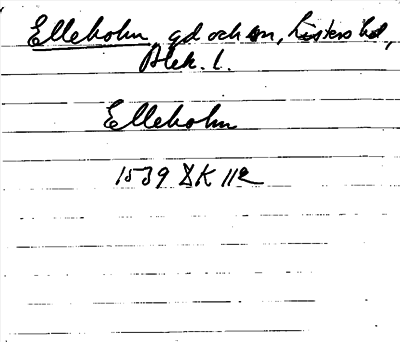 Elleholm, gd och sn, Listers hd,
Blek. l.
Elleholm
1539 DK 112